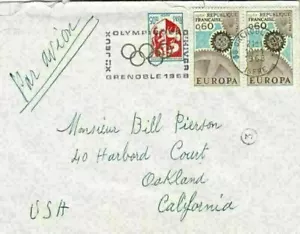 Par avion
Xes JEUX
OLYMPIQUES
D'HIVER
GRENOBLE 1968
RÉPUBLIQUE FRANÇAISE
0,60
EUROPA
RÉPUBLIQUE FRANÇAISE
0,60
EUROPA
GRENOBLE
Monsieur Bill Pierson
40 Harbord Court
Oakland
USA
California